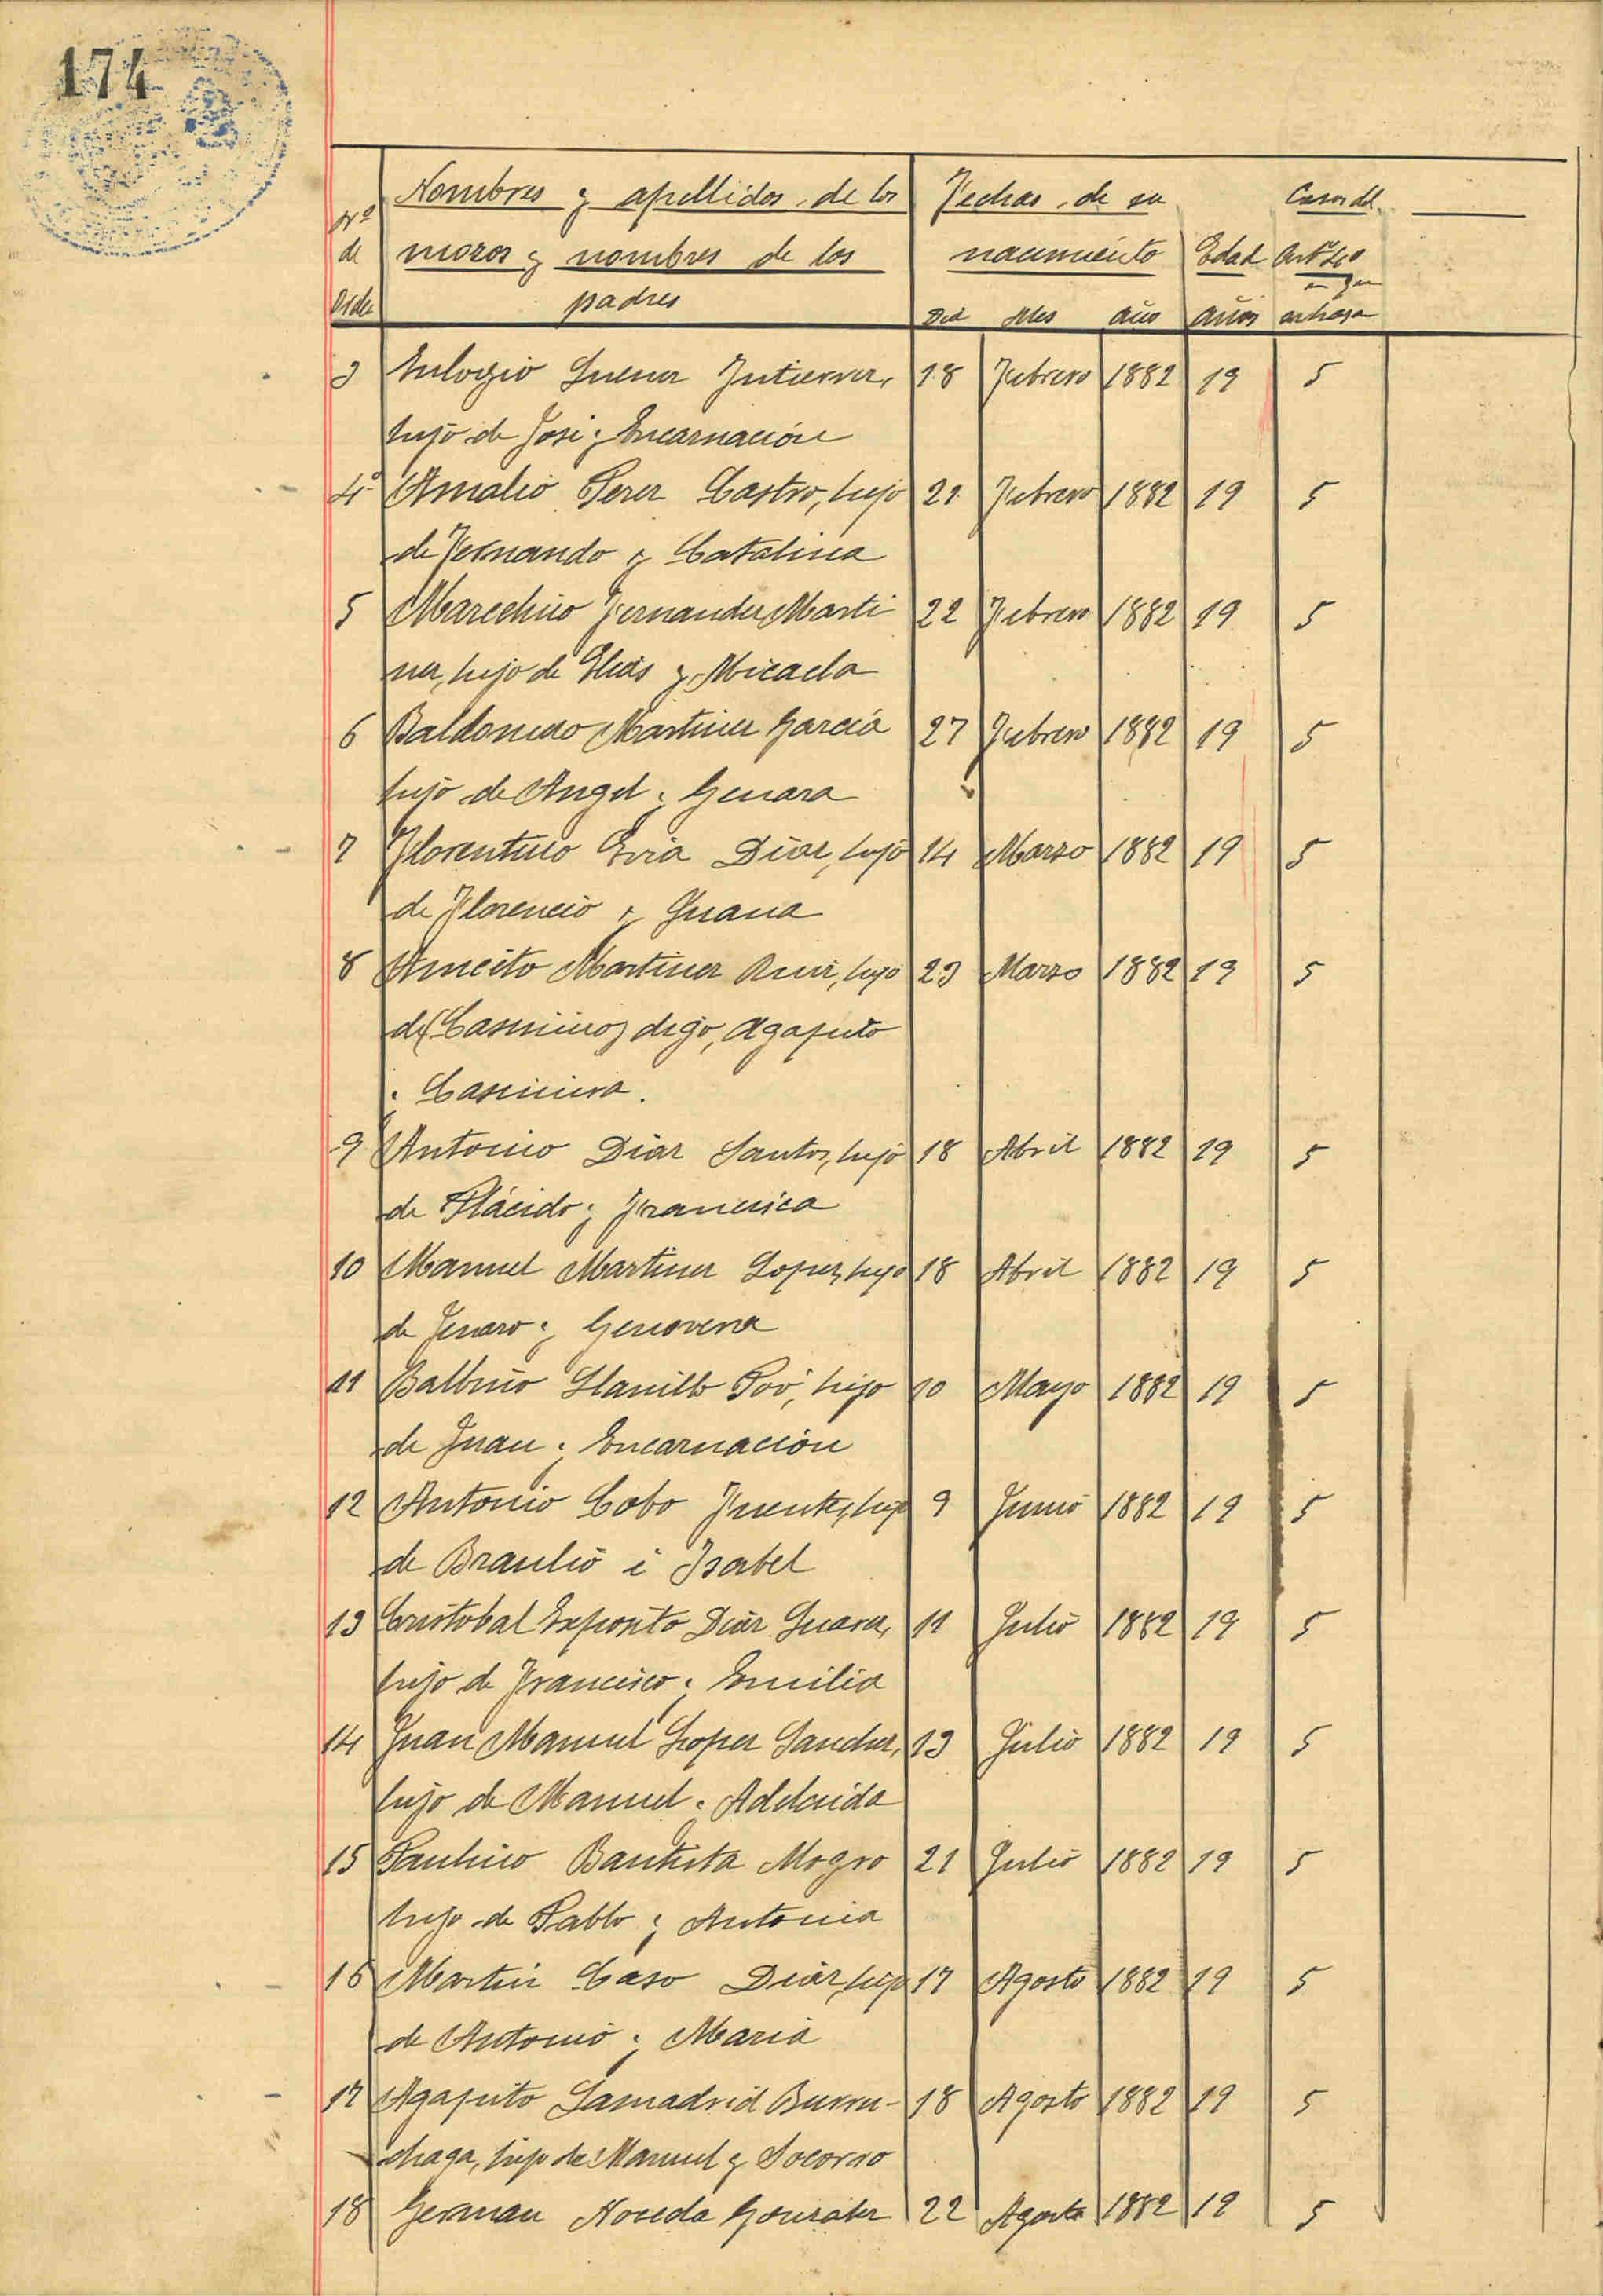 174
Nombres y apellidos de los Fechas de su Casos del
Nº
de mozos y nombres de los nacimiento Edad Artº 40
Orden padres Dia Mes año años
3 Eulogio Gutierrez, 18 Febrero 1882 19 5
hijo de José y Encarnación
4º Amalio Perez Castro, hijo 21 Febrero 1882 19 5
de Fernando y Catalina
5 Marcelino Fernandez Marti 22 Febrero 1882 19 5
nez, hijo de Elias y Micaela
6 Baldomero Martinez García 27 Febrero 1882 19 5
hijo de Angel y Genara
7 Florentino Diaz, hijo 14 Marzo 1882 19 5
de Florencio y Juana
8 Aniceto Martinez Ruiz, hijo 23 Marzo 1882 19 5
de (Casimiro) digo, Agapito
y Casimira.
9 Antonio Diaz Santos, hijo 18 Abril 1882 19 5
de Plácido y Francisca
10 Manuel Martinez Lopez, hijo 18 Abril 1882 19 5
de Jenaro y Genoveva
11 Balbino Llanillo Poó, hijo 10 Mayo 1882 19 5
de Juan y Encarnación
12 Antonio Cobo Fuentes, hijo 9 Junio 1882 19 5
de Braulio é Isabel
13 Cristobal Exposito Diaz 11 Julio 1882 19 5
hijo de Francisco y Emilia
14 Juan Manuel Lopez Sanchez, 13 Julio 1882 19 5
hijo de Manuel y Adelaida
15 Paulino Bautista Mogro 21 Julio 1882 19 5
hijo de Pablo y Antonia
16 Martin Caso Diaz, hijo 17 Agosto 1882 19 5
de Antonio y Maria
17 Agapito Lamadrid Burru- 18 Agosto 1882 19 5
chaga, hijo de Manuel y Socorro
18 German Noceda Gonzalez 22 Agosto 1882 19 5